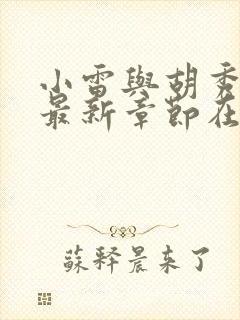 小雷與胡秀
最新章節在
蘇釋晨来了